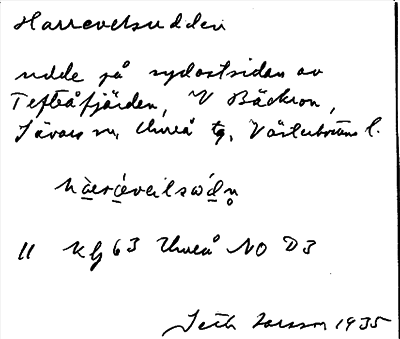 Harrevelsudden
udde på sydostsidan av
Tefteåfjärden, V Bäckron,
Sävars sn, Umeå tg, Västerbottens l.
hàerəveilsədn̥
11 Kbl 63 Umeå NO D3
Seth Larsson 1935